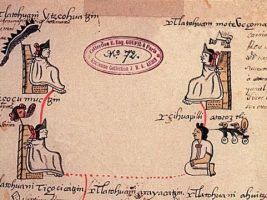 tlatohuani ytzcohuatzin
Tlatohuani moteueçoma
Collection E. Eug. GOUPIL à Paris
No. 72.
Ancienne Collection J. M. A. AUBIN
çoçomuctzin
ycihuapilli atotoztli
tlatohuani tiçocicatzin Tlatohuani axayacatzin Tlatohuani ahuitz